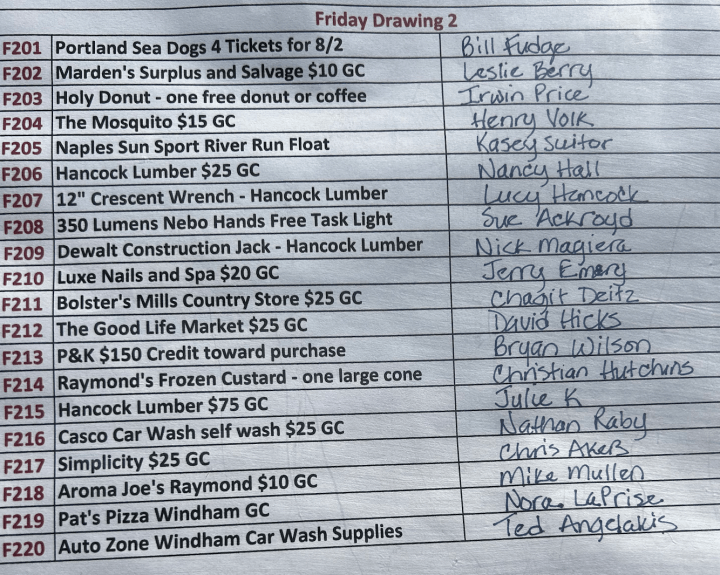 Friday Drawing 2
F201 Portland Sea Dogs 4 Tickets for 8/2 Bill Fudge
F202 Marden's Surplus and Salvage $10 GC Leslie Berry
F203 Holy Donut - one free donut or coffee Irwin Price
F204 The Mosquito $15 GC Henry Volk
F205 Naples Sun Sport River Run Float Kasey Suitor
F206 Hancock Lumber $25 GC Nancy Hall
F207 12" Crescent Wrench - Hancock Lumber Lucy Hancock
F208 350 Lumens Nebo Hands Free Task Light Sue Ackroyd
F209 Dewalt Construction Jack - Hancock Lumber Nick Magiera
F210 Luxe Nails and Spa $20 GC Jerry Emery
F211 Bolster's Mills Country Store $25 GC Chagit Deitz
F212 The Good Life Market $25 GC David Hicks
F213 P&K $150 Credit toward purchase Bryan Wilson
F214 Raymond's Frozen Custard - one large cone Christian Hutchins
F215 Hancock Lumber $75 GC Julie K
F216 Casco Car Wash self wash $25 GC Nathan Raby
F217 Simplicity $25 GC Chris Akers
F218 Aroma Joe's Raymond $10 GC Mike Mullen
F219 Pat's Pizza Windham GC Nora LaPrise
F220 Auto Zone Windham Car Wash Supplies Ted Angelakis